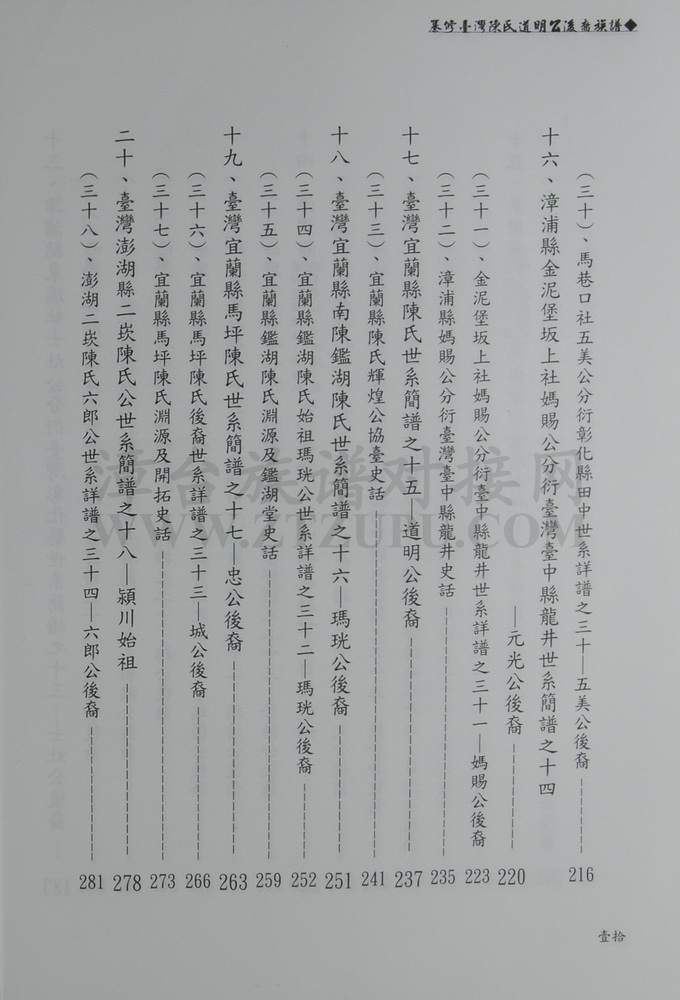 纂修臺灣陳氏道明公後裔族譜◆
（三十）、馬巷口社五美公分衍彰化縣田中世系詳譜之三十—五美公後裔 216
十六、漳浦縣金泥堡坂上社媽賜公分衍臺灣臺中縣龍井世系簡譜之十四
—元光公後裔 220
（三十一）、金泥堡坂上社媽賜公分衍臺中縣龍井世系詳譜之三十一—媽賜公後裔 223
（三十二）、漳浦縣媽賜公分衍臺灣臺中縣龍井史話 235
十七、臺灣宜蘭縣陳氏世系簡譜之十五—道明公後裔 237
（三十三）、宜蘭縣陳氏輝煌公協臺史話 241
十八、臺灣宜蘭縣南陳鑑湖陳氏世系簡譜之十六—瑪珖公後裔 251
（三十四）、宜蘭縣鑑湖陳氏始祖瑪珖公世系詳譜之三十二—瑪珖公後裔 252
（三十五）、宜蘭縣鑑湖陳氏淵源及鑑湖堂史話 259
十九、臺灣宜蘭縣馬坪陳氏世系簡譜之十七—忠公後裔 263
（三十六）、宜蘭縣馬坪陳氏後裔世系詳譜之三十三—城公後裔 266
（三十七）、宜蘭縣馬坪陳氏淵源及開拓史話 273
二十、臺灣澎湖縣二崁陳氏公世系簡譜之十八—潁川始祖 278
（三十八）、澎湖二崁陳氏六郎公世系詳譜之三十四—六郎公後裔 281
壹拾
漳台族谱对接网
WWW.ZTZUPU.COM